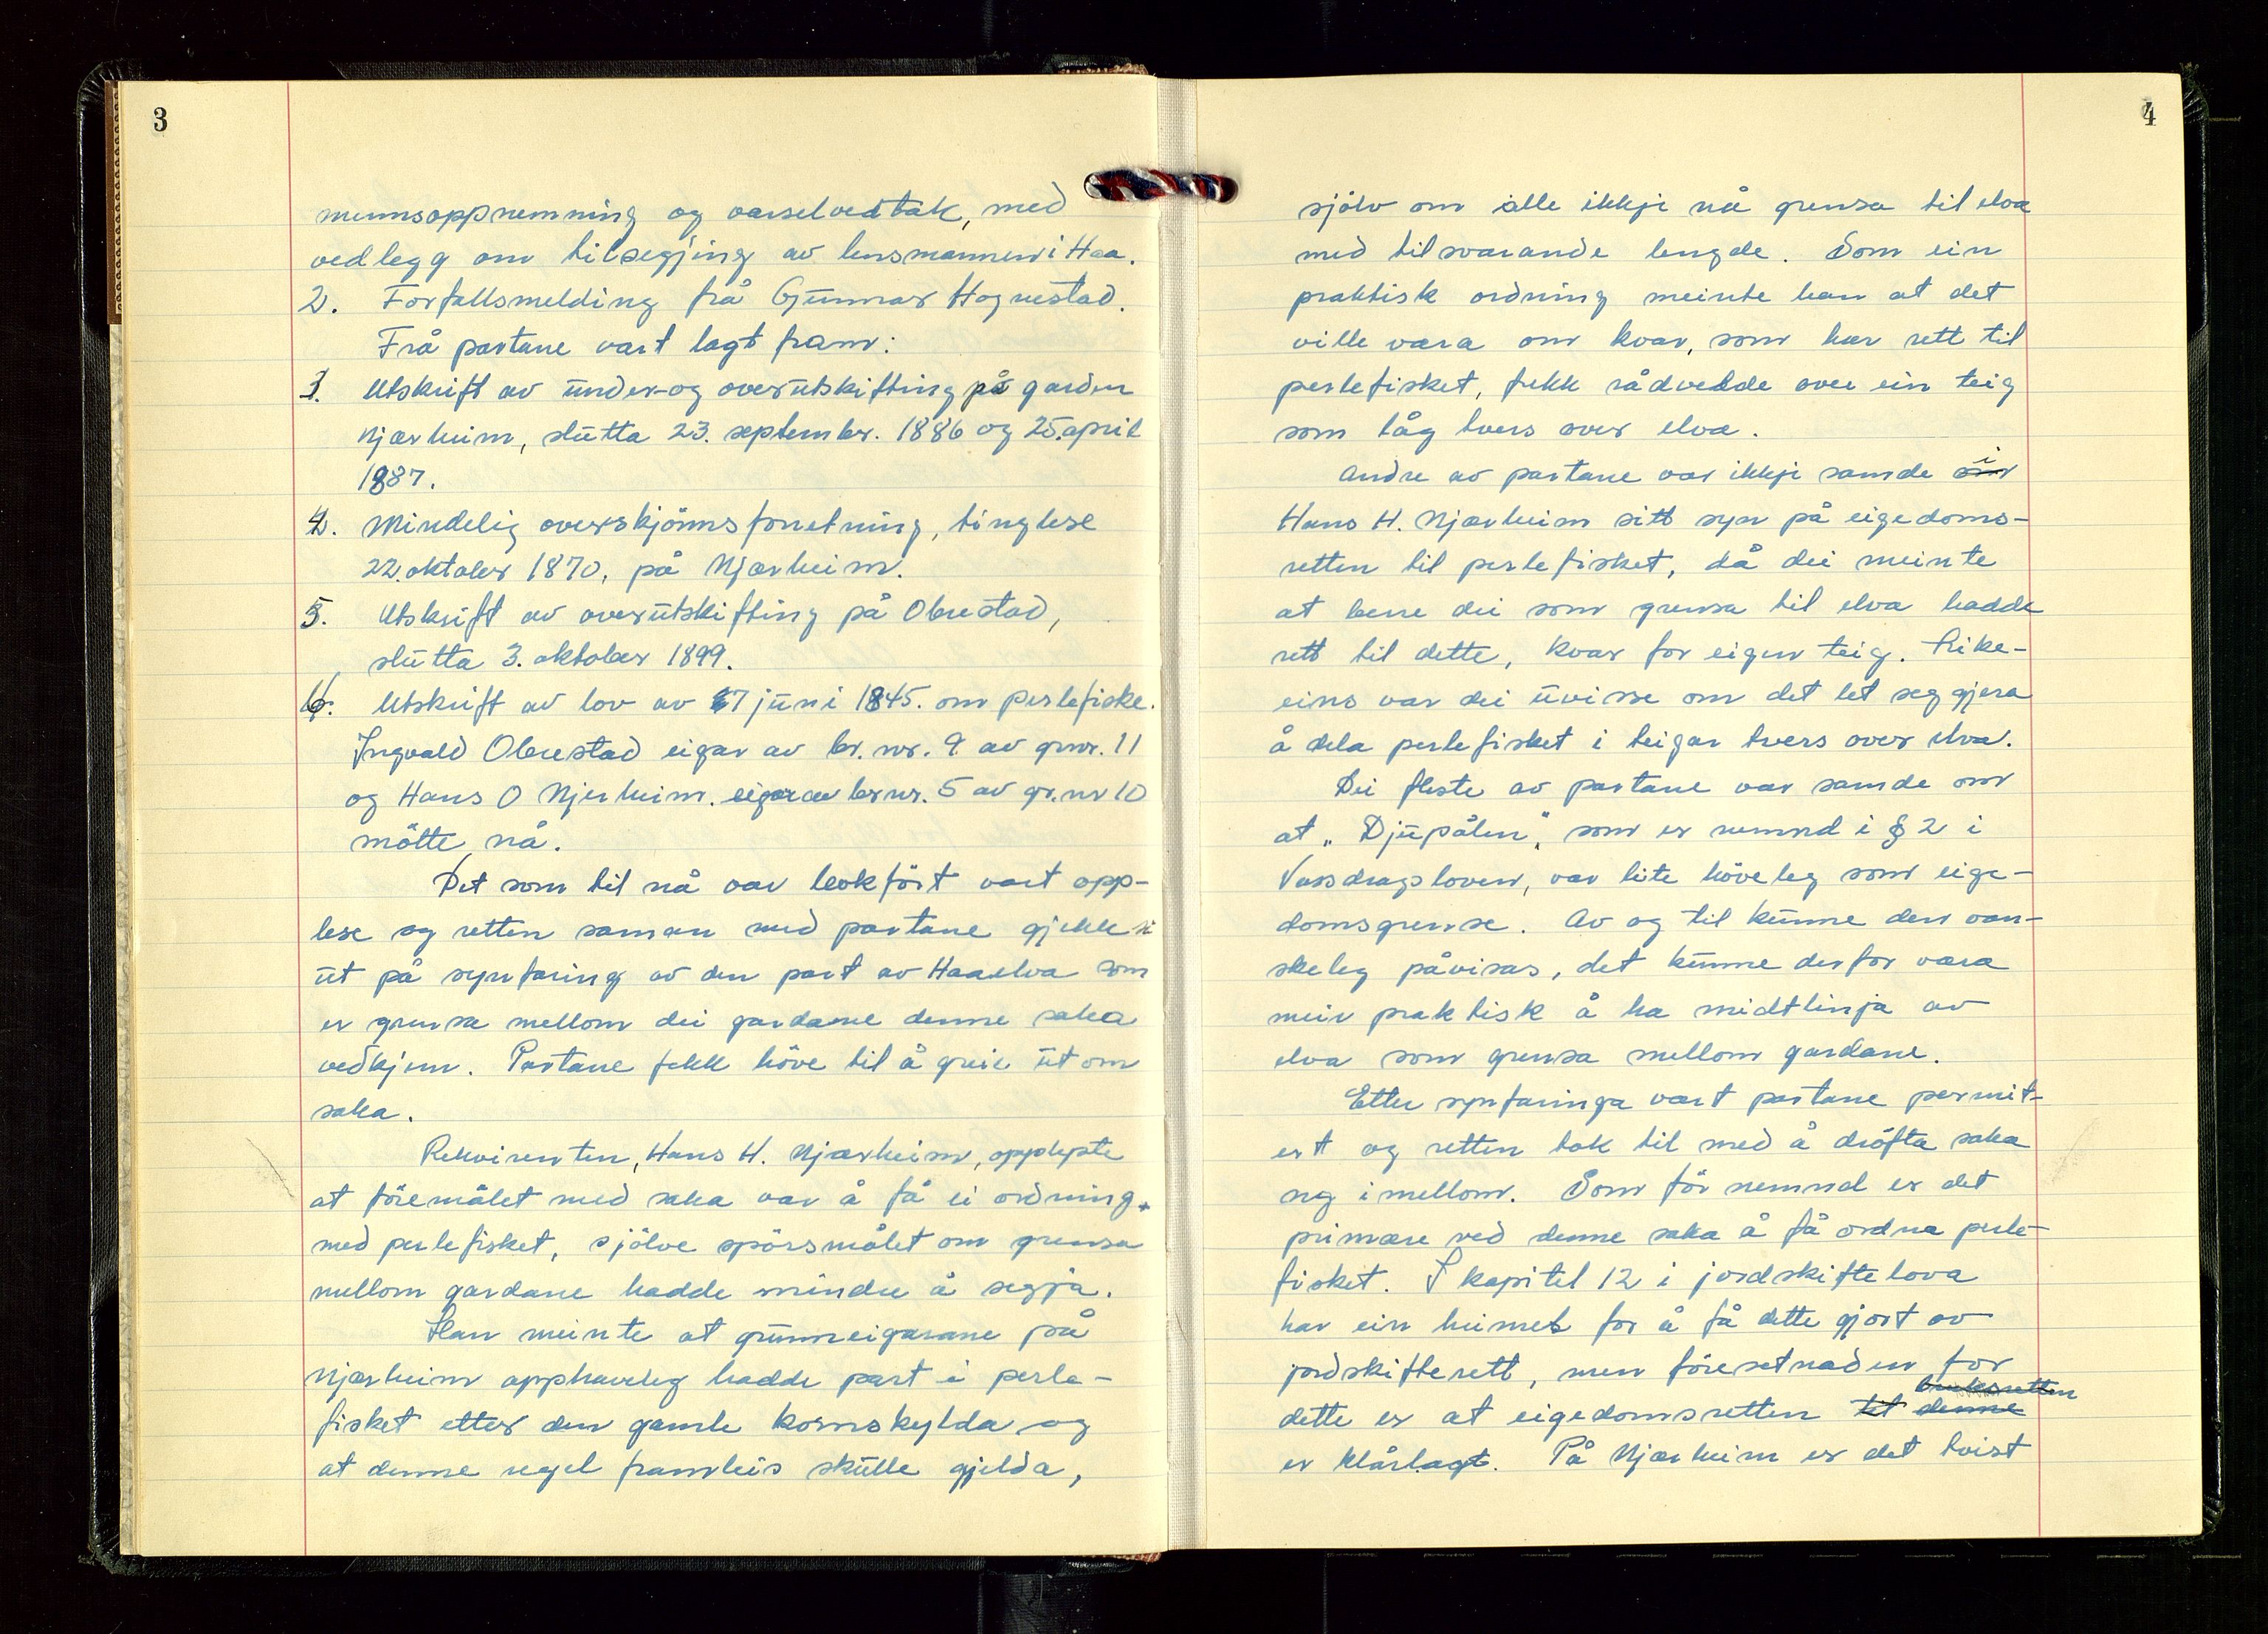 3
mennsoppnemning og varselvedtak, med
vedlegg om tilsegjing av lensmannen i Haa.
2. Forfallsmelding frå Gunnar Hognestad.
Frå partane vart lagt fram:
3. Utskrift av under- og overutskifting på garden
Njærheim, slutta 23. septembr. 1886 og 25. april
1887.
4. Mindelig overskjönnsforretning, tinglese
22. oktober 1870, på Njærheim.
5. Utskrift av overutskifting på Obrestad,
slutta 3. oktober 1899.
6. Utskrift av lov av 7 juni 1845. om perlefiske.
Ingvald Obrestad eigar av br. nr. 9 av gnr. 11
og Hans O Njerheim. eigar av br nr. 5 av gr. nr 10
mötte nå.
Det som til nå var bokfört vart opp-
lese og retten saman med partane gjekk so
ut på synfaring av den part av Haaelva som
er grensa mellom dei gardane denne saka
vedkjem. Partane fekk höve til å greie ut om
saka.
Rekvirenten, Hans H. Njærheim, opplyste
at föremålet med saka var å få ei ordning
med perlefisket, sjölve spörsmålet om grensa
mellom gardane hadde mindre å segja.
Han meinte at grunneigarane på
Njærheim opphaveleg hadde part i perle-
fisket etter den gamle kornskylda og
at denne regel framleis skulle gjelda,
4
sjölv om alle ikkje nå grensa til elva
med tilsvarande lengde. Som ein
praktisk ordning meinte han at det
ville vera om kvar, som har rett til
perlefisket, fekk rådvelde over ein teig
som låg tvers over elva.
Andre av partane var ikkje samde om i
Hans H. Njærheim sitt syn på eigedoms-
retten til perlefisket, då dei meinte
at bere dei som grensa til elva hadde
rett til dette, kvar for eigen teig. Like-
eins var dei uvisse om det let seg gjera
å dela perlefisket i teigar tvers over elva.
Dei fleste av partane var samde om
at „Djupålen", som er nemnd i § 2 i
Vassdragsloven, var lite höveleg som eige-
domsgrense. Av og til kunne den van-
skeleg påvisas, det kunne derfor vera
meir praktisk å ha midtlinja av
elva som grensa mellom gardane.
Etter synfaringa vart partane permit-
ert og retten tok til med å dröfta saka
seg imellom. Som för nemnd er det
primære ved denne saka å få ordna perle-
fisket. I kapitel 12 i jordskiftelova
har ein heimel for å få dette gjort av
jordskifterett, men föresetnaden for
bruksretten
dette er at eigedomsretten til denne
er klårlagt. På Njærheim er det tvist